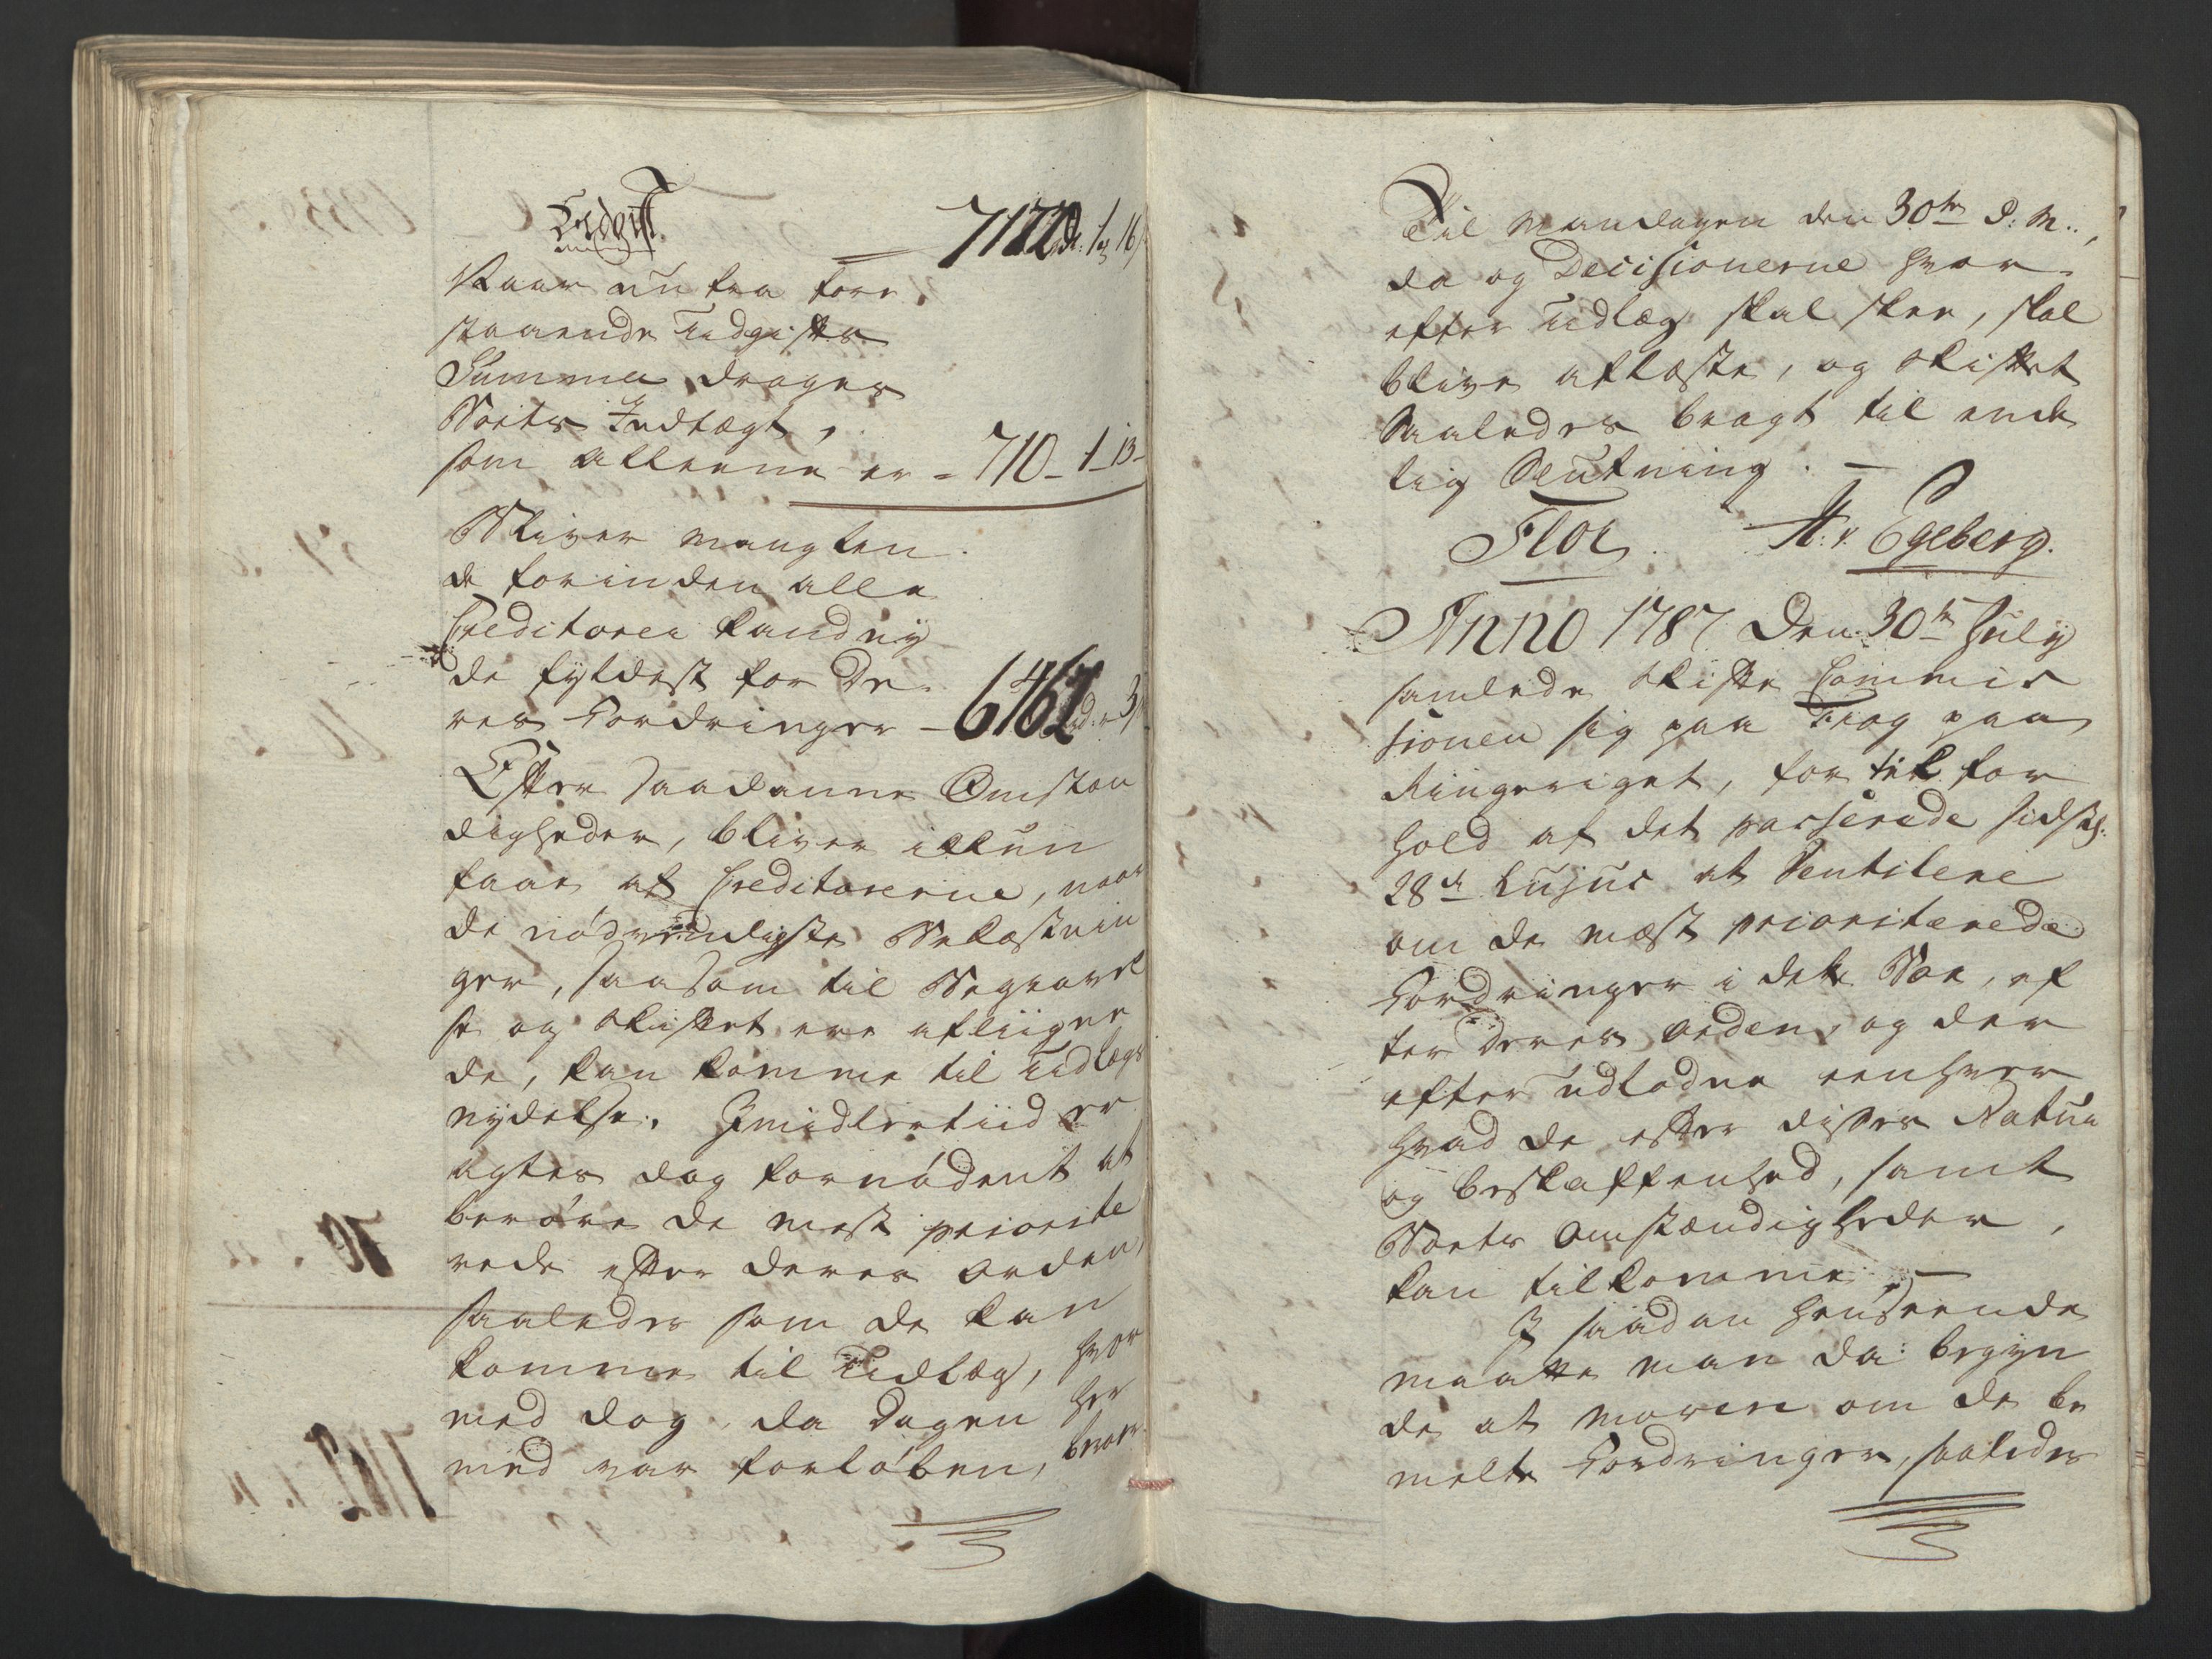 Udgift. 7172 rd. 1 ort 16 s
Naar nu fra fore-
staaende Udgifts
Summa drages
Boets Indtægt,
som alleene er - 710 - 1 - 13 -
Bliver manglen-
de forinden alle
Creditorer kand ny-
de fyldest for De-
res Fordringer - 6462 rd. - 3 s
Efter saadanne Omstæn
digheder, bliver ikkun
faae af Creditorerne, naar
de nødvendigste Bekostnin
ger, saasom til Begravel
se og Skiftet ere afliigne
de, kan komme til Udlægs
nydelse. Imidlertiid er
agtes dog fornødent at
berøre de mest priorite
rede efter deres Orden,
saaledes som de kan
komme til Udlæg, hvor
med dog, da Dagen her
med var forløben, beroer
til Mandagen den 30te d: M:,
da og Decisionerne hvor-
efter Udlæg skal skee, skal
blive aflæste, og Skiftet
saaledes bragt til ende
lig Slutning. —
Flor. A. v. Egeberg.
Anno 1787 Den 30te July
samlede Skifte Commis
sionen sig paa Frog paa
Ringeriget, for til for
hold af det passerede sidstl:
28de hujus at Ventilere
om de mæst prioriterede
Fordringer i dette Boe, ef
ter deres Orden, og der
efter udlodne eenhver
hvad de efter disses Natur
og beskaffenhed, samt
Boets Omstændigheder,
kan tilkomme. —
I saadan henseende
maatte man da begyn
de at movere om de be
meldte Fordringer, saaledes